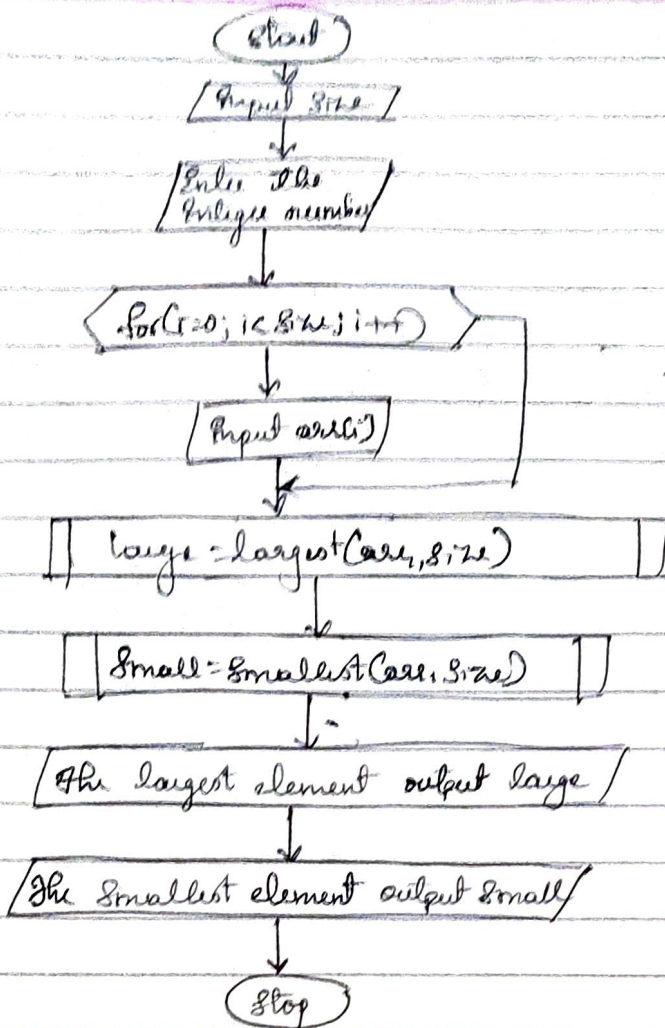 Start
Input Size
Enter the
Integer number
for(i=0; i< Size; i++)
Input arr[i]
large = largest(arr, size)
Small = Smallest(arr, Size)
The largest element output large
The Smallest element output Small
Stop